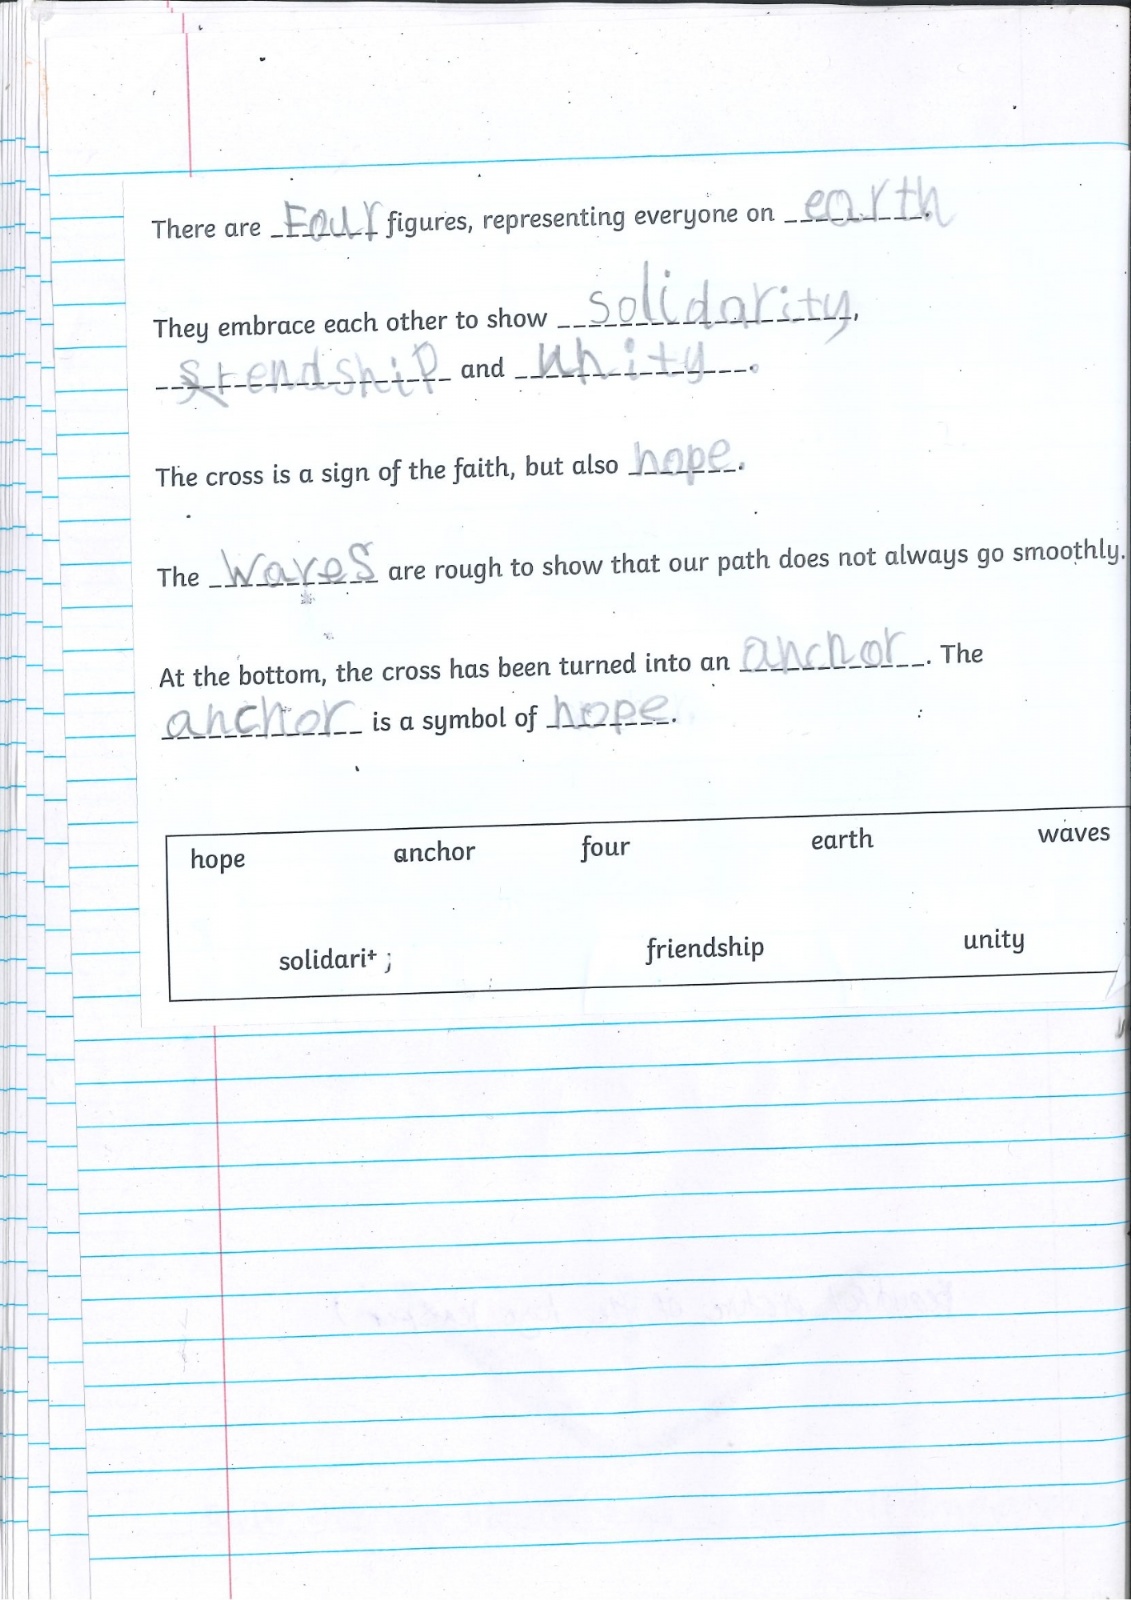 There are Four figures, representing everyone on earth.
They embrace each other to show solidarity,
frendship and unity.
The cross is a sign of the faith, but also hope.
The waves are rough to show that our path does not always go smoothly.
At the bottom, the cross has been turned into an anchor. The
anchor is a symbol of hope.
hope anchor four earth waves
solidarit; friendship unity